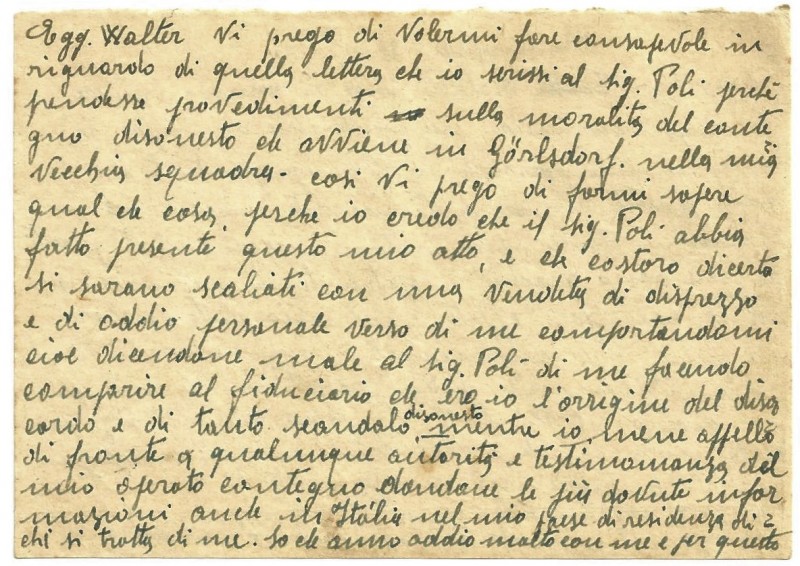 Egg. Walter Vi prego di Volermi fare consapevole in
riguardo di quella lettera che io scrissi al Sig. Poli perchè
pendesse provedimenti sulla moralità del conte
gno disonesto che avviene in Görlsdorf. nella mia
vecchia squadra - così Vi prego di farmi sapere
qual che cosa, perche io credo che il Sig. Poli abbia
fatto presente questo mio atto, e che costoro di certo
si sarano scaliati con una vendita di disprezzo
e di oddio personale verso di me comportandomi
cioè dicendone male al Sig. Poli di me facendo
comparire al fiduciario che ero io l'orrigine del disa
cordo e di tanto scandalo disonesto, mentre io mene appello
di fronte a qualunque autorità e testimonianza del
mio operato contegno dandone le più dovute infor
mazioni anche in Itália nel mio paese di residenza di
chi si tratta di me. So che anno oddio molto con me e per questo